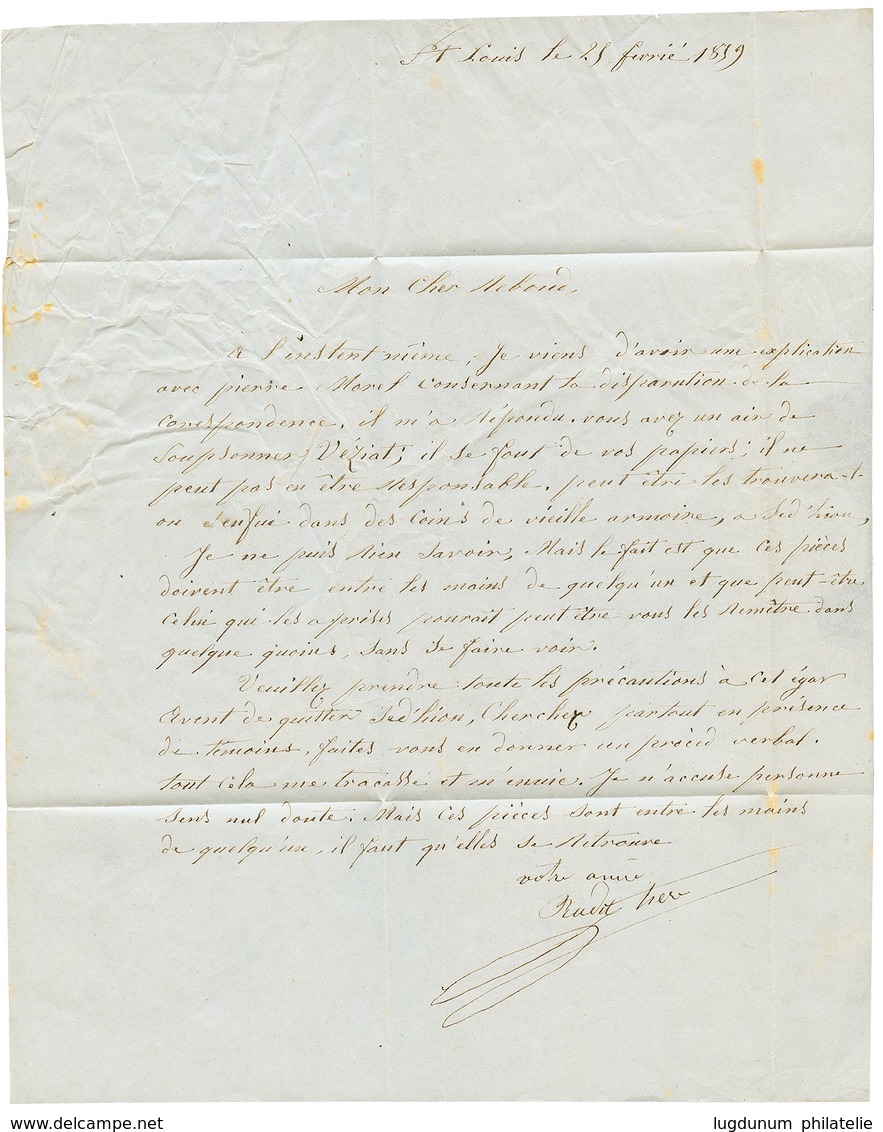 St Louis le 25 fevrié 1859
Mon Cher Reboud,
a l'instent même, Je viens d'avoir une explication
avec pierre Morel consernant la disparution de la
corespondence, il m'a répondu. vous avez un air de
Soupsonner Véziat; il se fout de vos papiers; il ne
peut pas en être responsable. peut être les trouvera-t-
on enfui dans des coins de vieille armoire, a Sed'hiou,
Je ne puis rien savoir, Mais le fait est que ces pièces
doivent être entre les mains de quelqu'un et que peut-être
celui qui les a prises pourait peut être vous les remêtre dans
quelque quoins, sans se faire voir.
Veuillez prendre toute les précautions à cet égar
avent de quitter Sed'hiou, Cherchez partout en présence
de temoins, faites vous en donner un procèd verbal.
tout cela me tracasse et m'enuie. Je n'accuse personne
sens nul doute. Mais ces pièces sont entre les mains
de quelqu'un, il faut qu'elles se retrouve
votre amie
lugdunum philatelie
www.delcampe.net